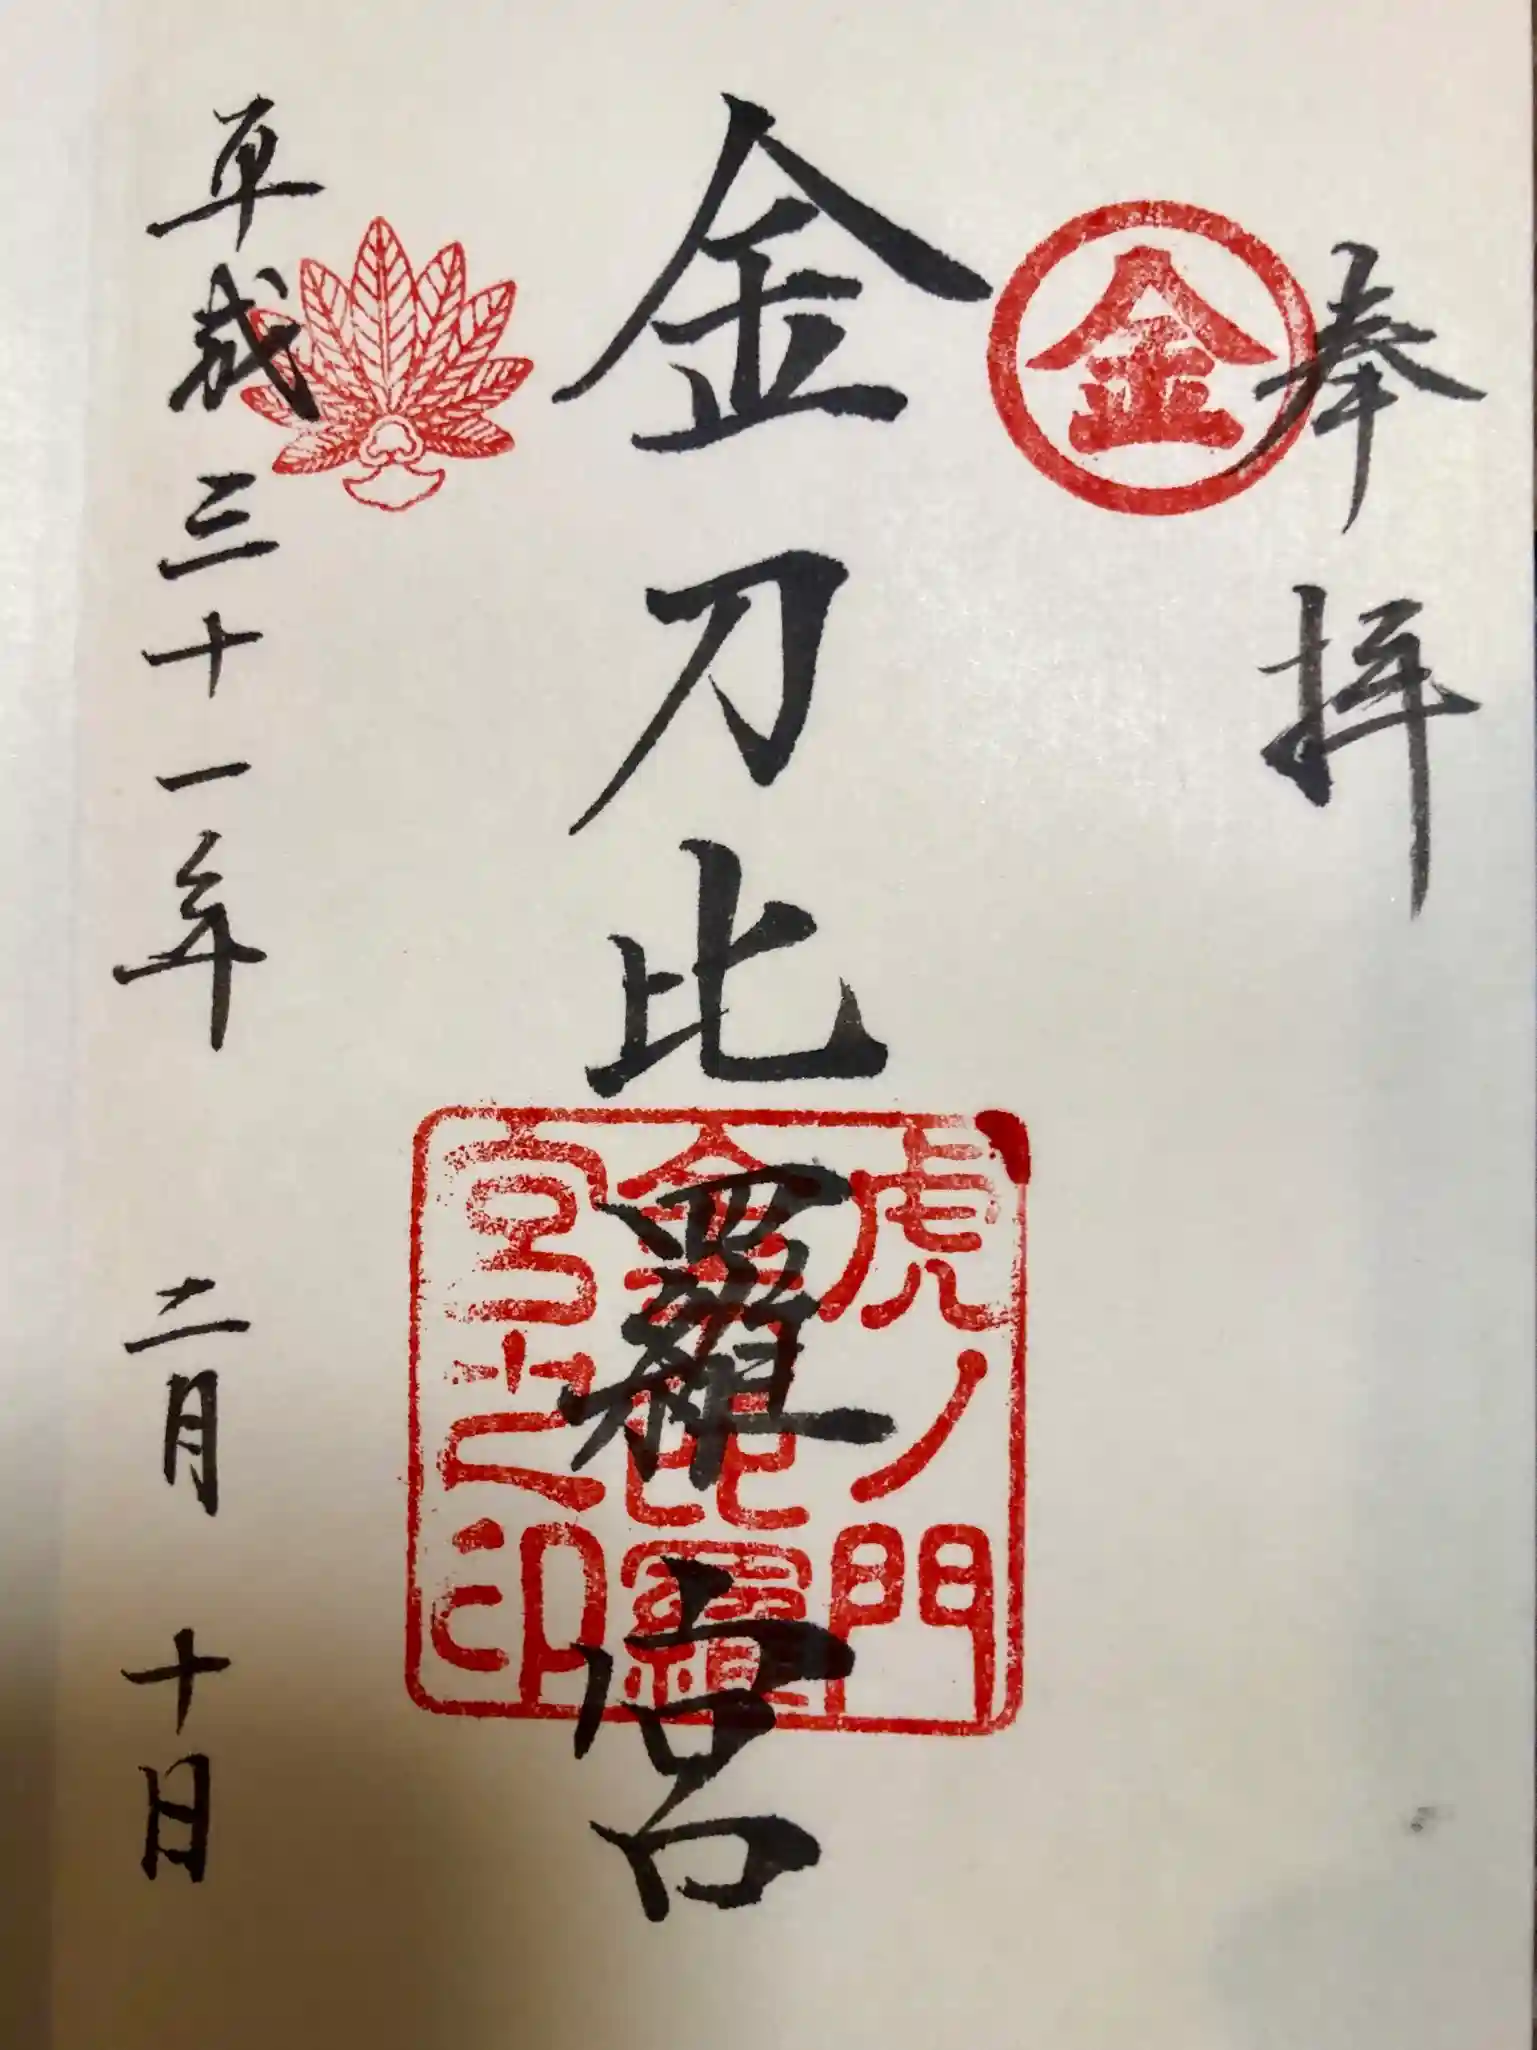 奉拝
金
金刀比羅宮
虎ノ門
金刀比羅
宮之印
平成三十一年二月十日